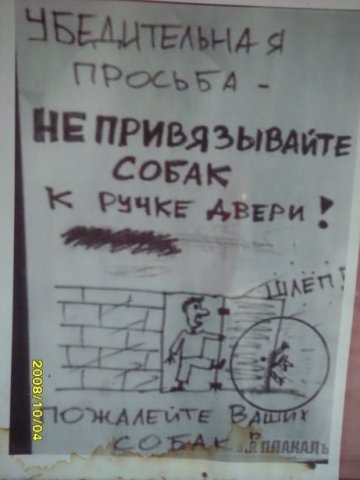 УБЕДИТЕЛЬНАЯ
ПРОСЬБА -
НЕ ПРИВЯЗЫВАЙТЕ
СОБАК
К РУЧКЕ ДВЕРИ!
ШЛЁП!
ПОЖАЛЕЙТЕ ВАШИХ
СОБАК
Я ПЛАКАЛЪ
2008/10/04